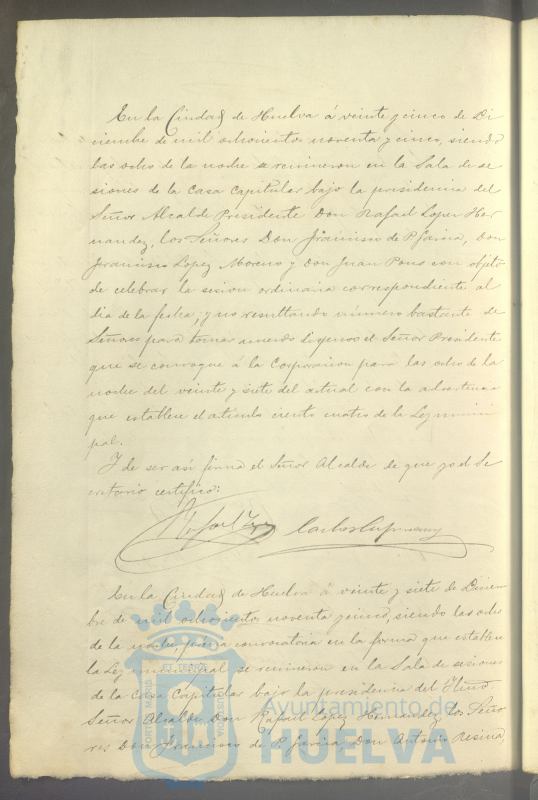 En la Ciudad de Huelva á veinte y cinco de Di
ciembre de mil ochocientos noventa y cinco, siendo
las ocho de la noche se reunieron en la Sala de se
siones de la Casa Capitular bajo la presidencia del
Señor Alcalde Presidente Don Rafael Lopez Her
nandez, los Señores Don Francisco de P. Garcia, Don
Francisco Lopez Moreno y Don Juan Pons con objeto
de celebrar la sesion ordinaria correspondiente al
dia de la fecha, y no resultando número bastante de
Señores para tomar acuerdo dispuso el Señor Presidente
que se convoque á la Corporacion para las ocho de la
noche del veinte y siete del actual con la advertencia
que establece el articulo ciento cuatro de la Ley munici
pal.
Y de ser asi firma el Señor Alcalde de que yo el Se
cretario certifico:
Rafael Lopez
En la Ciudad de Huelva á veinte y siete de Diciem
bre de mil ochocientos noventa y cinco, siendo las ocho
de la noche previa convocatoria en la forma que establece
la Ley municipal se reunieron en la Sala de sesiones
de la Casa Capitular bajo la presidencia del Iltmo.
Señor Alcalde Don Rafael Lopez Hernandez, los Seño
res Don Francisco de P. Garcia Don Antonio Resina
PORTUS MARIS
ET TERRÆ
CUSTODIA
Ayuntamiento de
HUELVA